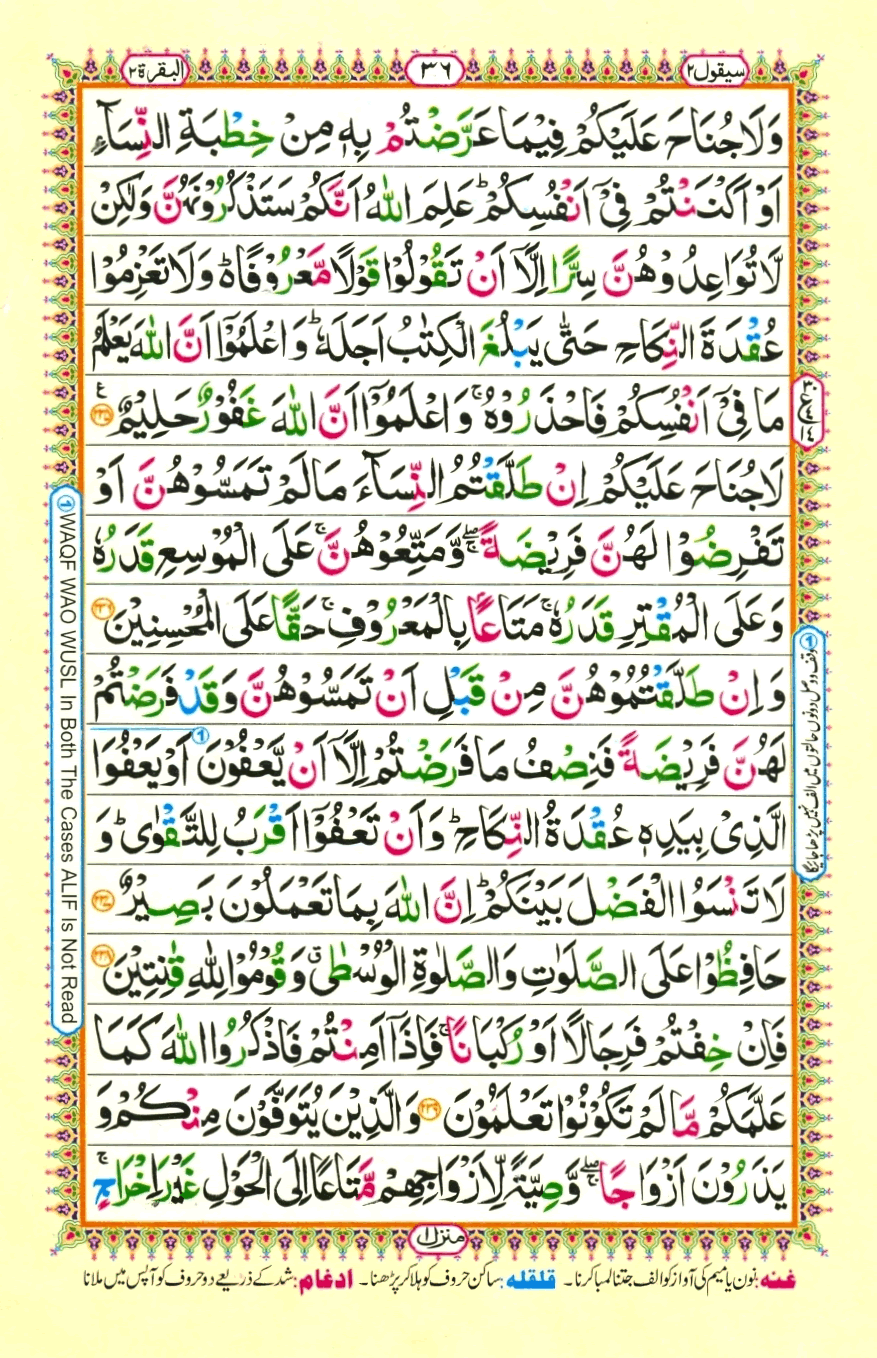 البقرة ٢
٣٦
سيقول ٢
وَلَا جُنَاحَ عَلَيْكُمْ فِيْمَا عَرَّضْتُمْ بِهٖ مِنْ خِطْبَةِ النِّسَآءِ
اَوْ اَكْنَنْتُمْ فِيْٓ اَنْفُسِكُمْ ؕ عَلِمَ اللّٰهُ اَنَّكُمْ سَتَذْكُرُوْنَهُنَّ وَلٰكِنْ
لَّا تُوَاعِدُوْهُنَّ سِرًّا اِلَّآ اَنْ تَقُوْلُوْا قَوْلًا مَّعْرُوْفًا ۬ؕ وَلَا تَعْزِمُوْا
عُقْدَةَ النِّكَاحِ حَتّٰى يَبْلُغَ الْكِتٰبُ اَجَلَهٗ ؕ وَاعْلَمُوْٓا اَنَّ اللّٰهَ يَعْلَمُ
مَا فِيْٓ اَنْفُسِكُمْ فَاحْذَرُوْهُ ۚ وَاعْلَمُوْٓا اَنَّ اللّٰهَ غَفُوْرٌ حَلِيْمٌ ﴿۲۳۵﴾ ع
لَا جُنَاحَ عَلَيْكُمْ اِنْ طَلَّقْتُمُ النِّسَآءَ مَا لَمْ تَمَسُّوْهُنَّ اَوْ
تَفْرِضُوْا لَهُنَّ فَرِيْضَةً ۖۚ وَّمَتِّعُوْهُنَّ ۚ عَلَى الْمُوْسِعِ قَدَرُهٗ
وَعَلَى الْمُقْتِرِ قَدَرُهٗ ۚ مَتَاعًۢا بِالْمَعْرُوْفِ ۚ حَقًّا عَلَى الْمُحْسِنِيْنَ ﴿۲۳۶﴾
وَاِنْ طَلَّقْتُمُوْهُنَّ مِنْ قَبْلِ اَنْ تَمَسُّوْهُنَّ وَقَدْ فَرَضْتُمْ
لَهُنَّ فَرِيْضَةً فَنِصْفُ مَا فَرَضْتُمْ اِلَّآ اَنْ يَّعْفُوْنَ اَوْ يَعْفُوَا ①
الَّذِيْ بِيَدِهٖ عُقْدَةُ النِّكَاحِ ؕ وَاَنْ تَعْفُوْٓا اَقْرَبُ لِلتَّقْوٰى ؕ وَ
لَا تَنْسَوُا الْفَضْلَ بَيْنَكُمْ ؕ اِنَّ اللّٰهَ بِمَا تَعْمَلُوْنَ بَصِيْرٌ ﴿۲۳۷﴾
حَافِظُوْا عَلَى الصَّلَوٰتِ وَالصَّلٰوةِ الْوُسْطٰى ۗ وَقُوْمُوْا لِلّٰهِ قٰنِتِيْنَ ﴿۲۳۸﴾
فَاِنْ خِفْتُمْ فَرِجَالًا اَوْ رُكْبَانًا ۚ فَاِذَآ اَمِنْتُمْ فَاذْكُرُوا اللّٰهَ كَمَا
عَلَّمَكُمْ مَّا لَمْ تَكُوْنُوْا تَعْلَمُوْنَ ﴿۲۳۹﴾ وَالَّذِيْنَ يُتَوَفَّوْنَ مِنْكُمْ وَ
يَذَرُوْنَ اَزْوَاجًا ۖۚ وَّصِيَّةً لِّاَزْوَاجِهِمْ مَّتَاعًا اِلَى الْحَوْلِ غَيْرَ اِخْرَاجٍ ۚ
ع
① وقف و وصل دونوں حالتوں میں الف نہیں پڑھا جائیگا
① WAQF WAO WUSL In Both The Cases ALIF Is Not Read
منزل ۱
غنه: نون یا میم کی آواز کو الف جتنا لمبا کرنا۔ قلقله: ساکن حروف کو ہلا کر پڑھنا۔ ادغام: شد کے ذریعے دو حروف کو آپس میں ملانا